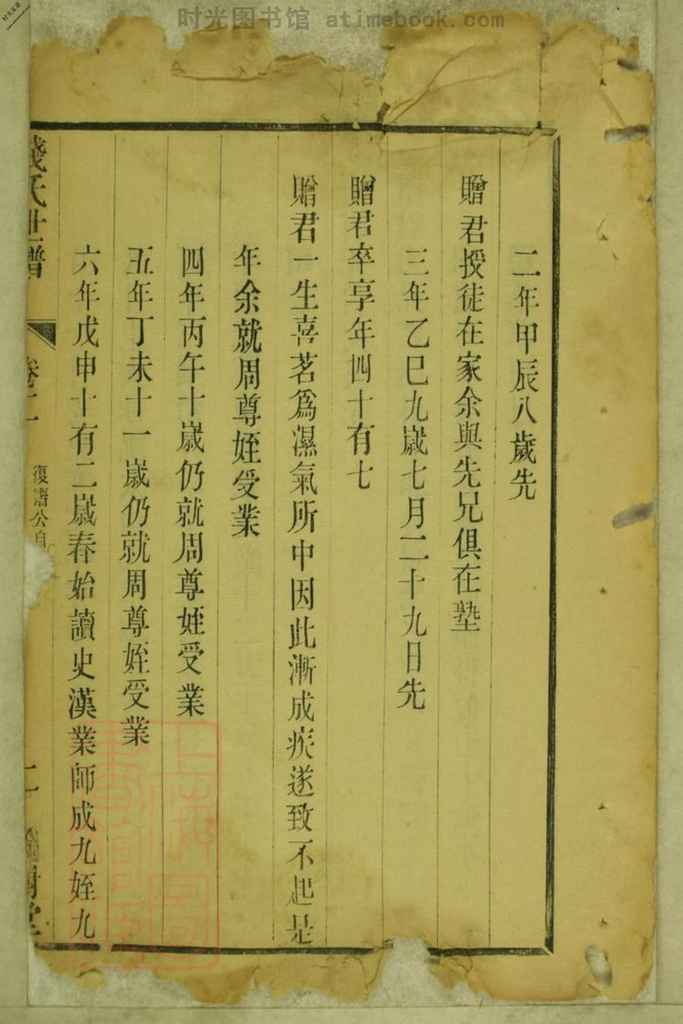 时光图书馆 atimebook.com
二年甲辰八歲先
贈君授徒在家余與先兄俱在塾
三年乙巳九歲七月二十九日先
贈君卒享年四十有七
贈君一生喜茗為濕氣所中因此漸成疾遂致不起是
年余就周尊姪受業
四年丙午十歲仍就周尊姪受業
五年丁未十一歲仍就周尊姪受業
六年戊申十有二歲春始讀史漢業師成九姪九
錢氏世譜
卷二
復濤公自
二
樹堂